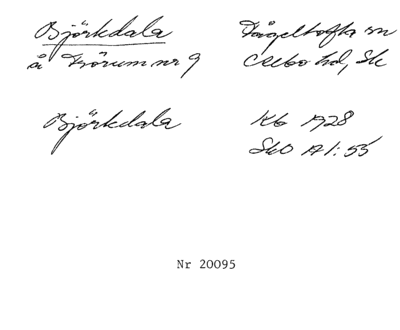 Björkdala
å Frörum nr 9
Fågeltofta sn
Albo hd, Sk
Björkdala
Kb 1928
SkO A1:55
Nr 20095